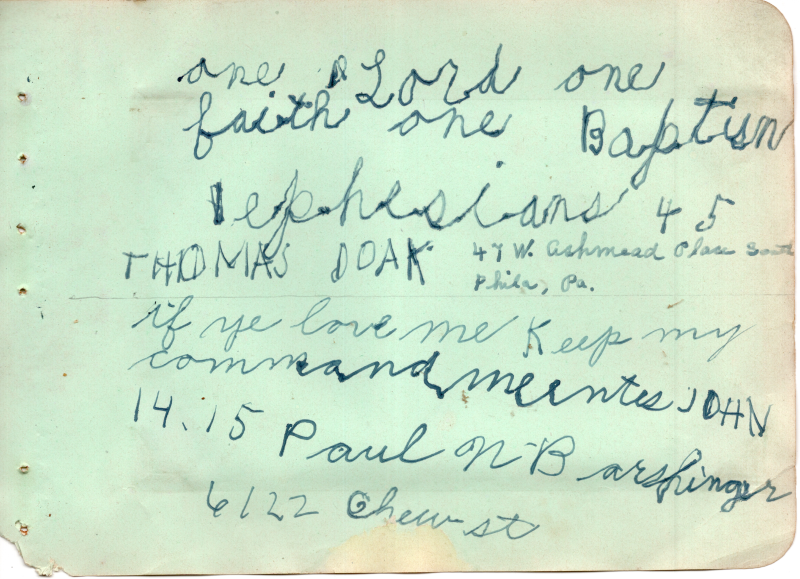 one Lord one
faith one Baptism
ephesians 4 5
THOMAS DOAK 47 W. Ashmead Place South
Phila, Pa.
if ye love me Keep my
commandmeents JOHN
14.15
Paul N-Barshinger
6122 Chew st